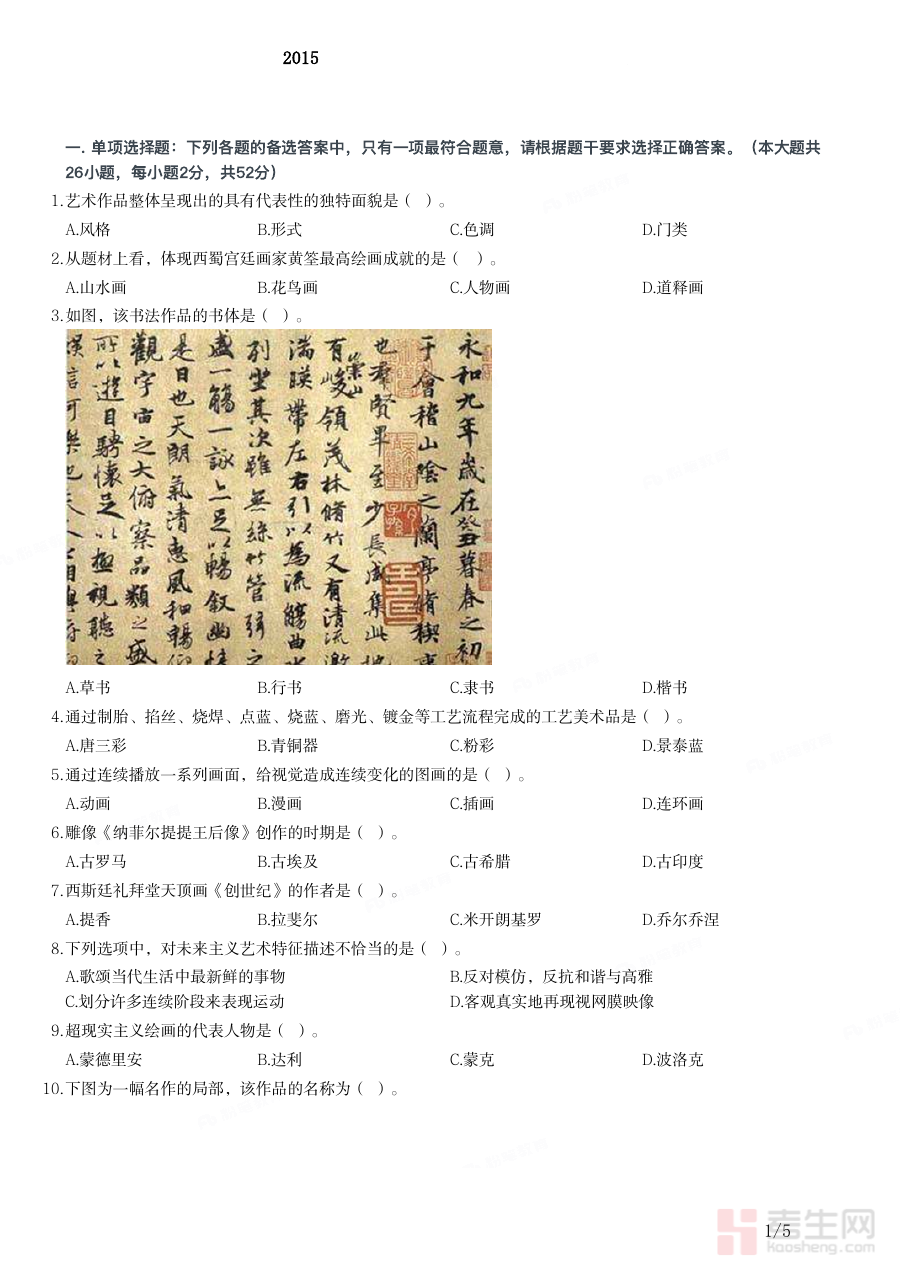 2015
一. 单项选择题：下列各题的备选答案中，只有一项最符合题意，请根据题干要求选择正确答案。（本大题共
26小题，每小题2分，共52分）
1.艺术作品整体呈现出的具有代表性的独特面貌是（ ）。
A.风格 B.形式 C.色调 D.门类
2.从题材上看，体现西蜀宫廷画家黄筌最高绘画成就的是（ ）。
A.山水画 B.花鸟画 C.人物画 D.道释画
3.如图，该书法作品的书体是（ ）。
永和九年歲在癸丑暮春之初
于會稽山陰之蘭亭脩稧事
也羣賢畢至少長咸集此地
有崇山峻領茂林脩竹又有清流激
湍暎帶左右引以為流觴曲水
列坐其次雖無絲竹管弦之
盛一觴一詠亦足以暢叙幽情
是日也天朗氣清惠風和暢仰
觀宇宙之大俯察品類之盛
所以遊目騁懷足以極視聽之
娛信可樂也夫人之相與俯
A.草书 B.行书 C.隶书 D.楷书
4.通过制胎、掐丝、烧焊、点蓝、烧蓝、磨光、镀金等工艺流程完成的工艺美术品是（ ）。
A.唐三彩 B.青铜器 C.粉彩 D.景泰蓝
5.通过连续播放一系列画面，给视觉造成连续变化的图画的是（ ）。
A.动画 B.漫画 C.插画 D.连环画
6.雕像《纳菲尔提提王后像》创作的时期是（ ）。
A.古罗马 B.古埃及 C.古希腊 D.古印度
7.西斯廷礼拜堂天顶画《创世纪》的作者是（ ）。
A.提香 B.拉斐尔 C.米开朗基罗 D.乔尔乔涅
8.下列选项中，对未来主义艺术特征描述不恰当的是（ ）。
A.歌颂当代生活中最新鲜的事物 B.反对模仿，反抗和谐与高雅
C.划分许多连续阶段来表现运动 D.客观真实地再现视网膜映像
9.超现实主义绘画的代表人物是（ ）。
A.蒙德里安 B.达利 C.蒙克 D.波洛克
10.下图为一幅名作的局部，该作品的名称为（ ）。
1/5
考生网
kaosheng.com